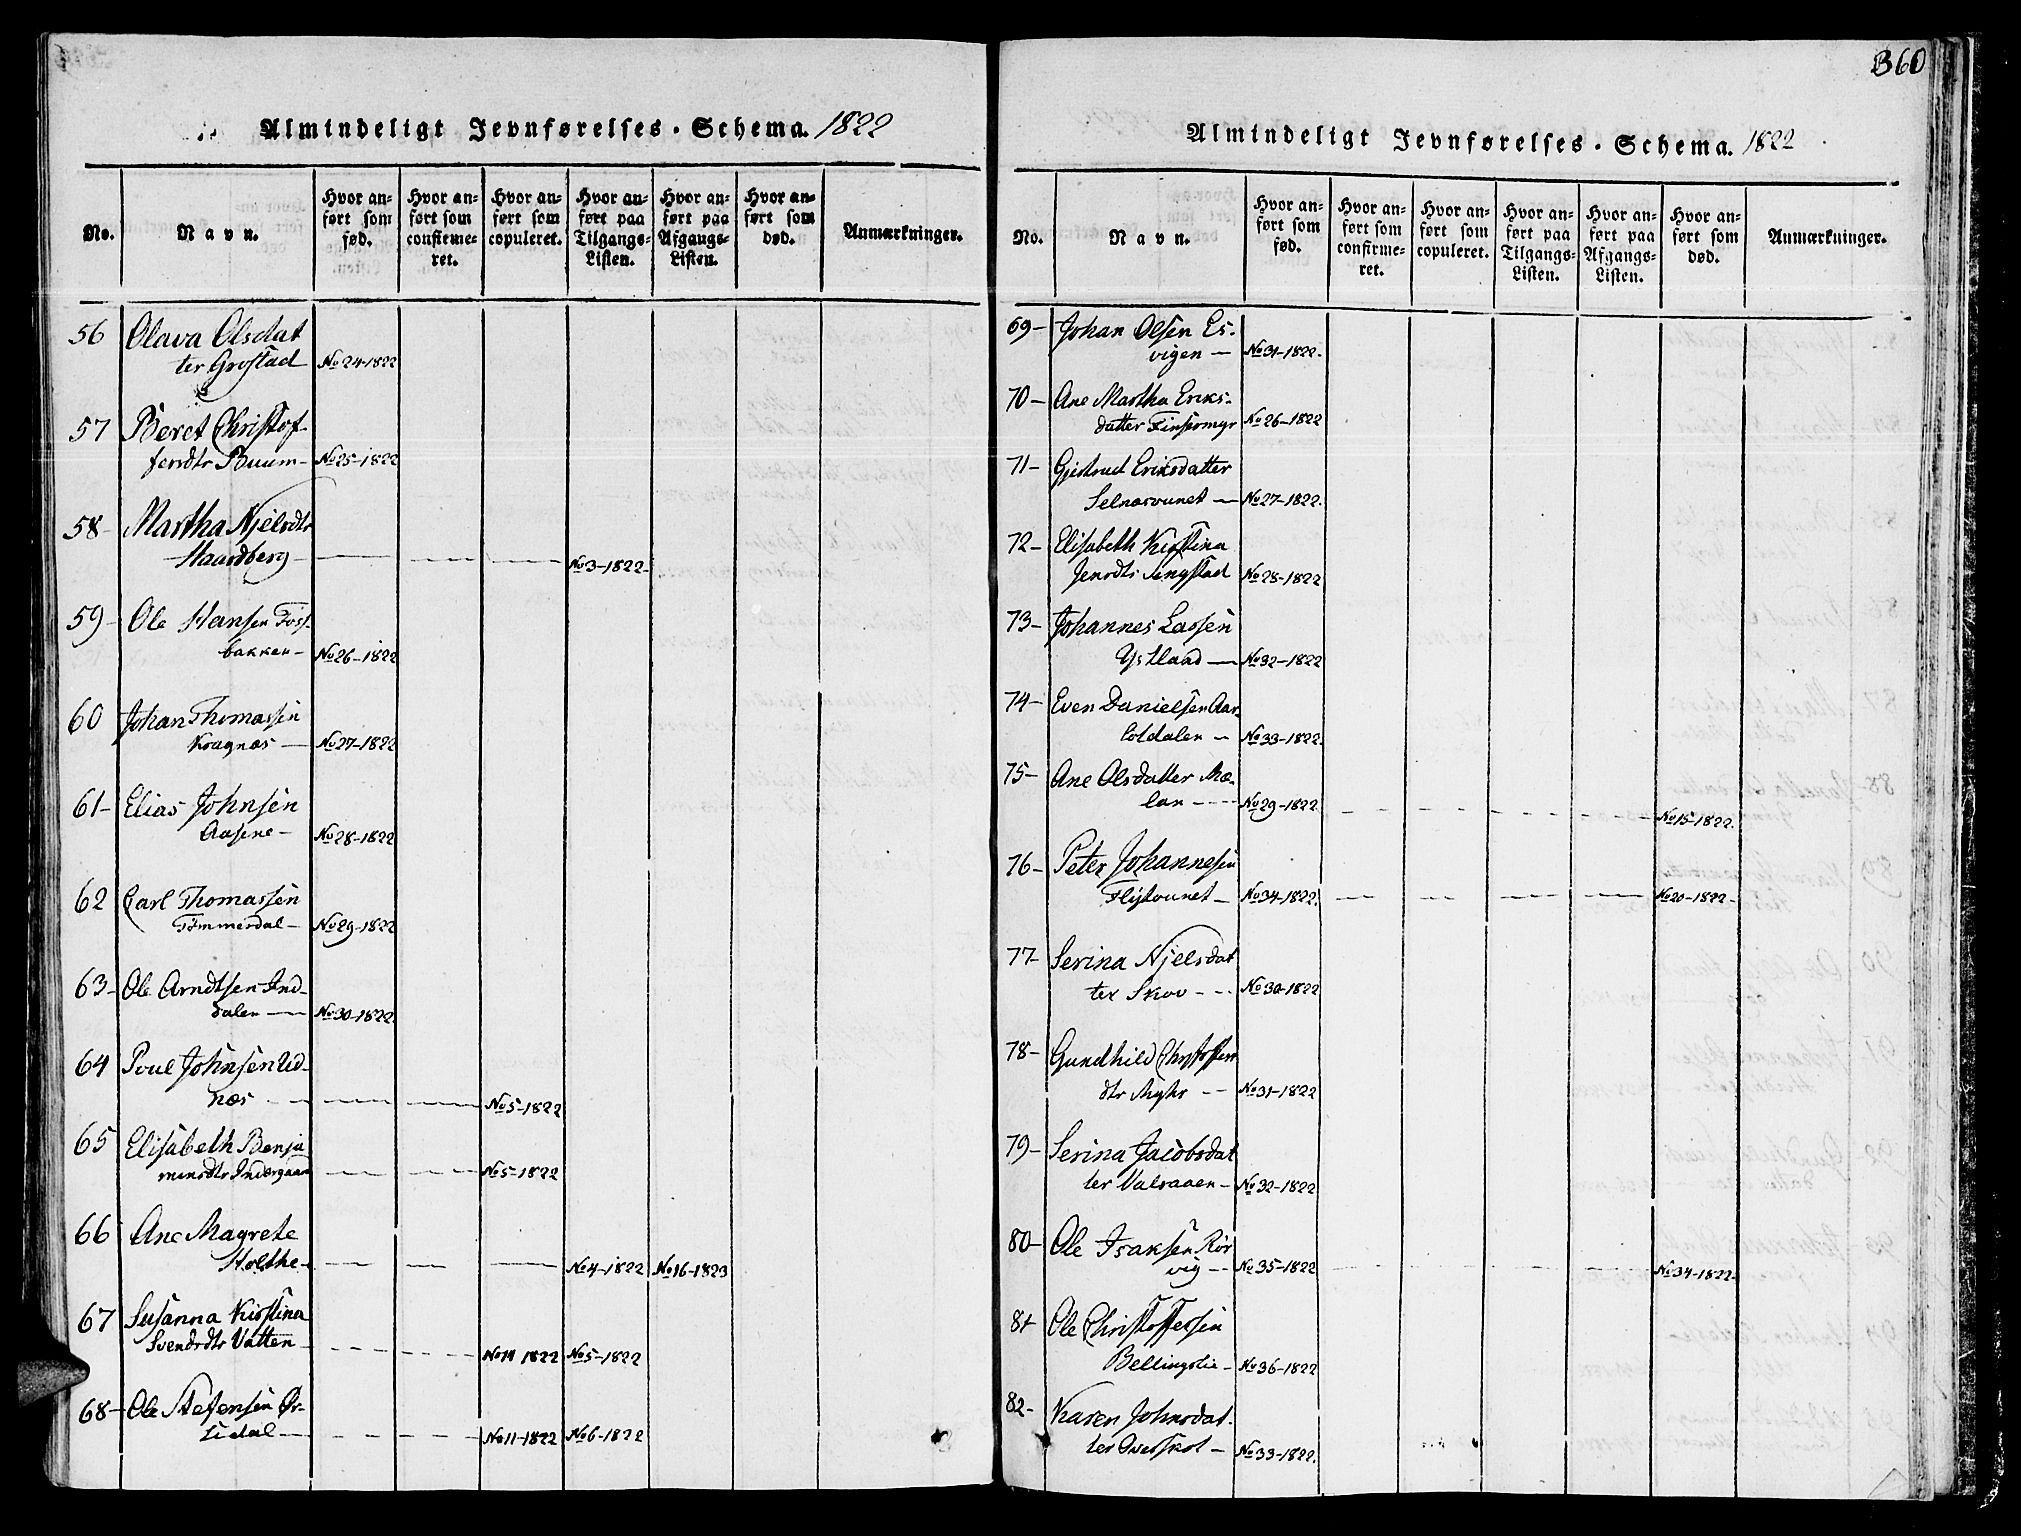 Almindeligt Jevnførelses-Schema. 1822
No.
Navn.
Hvor anført som fød.
Hvor anført som confirmeret.
Hvor anført som copuleret.
Hvor anført paa Tilgangs-Listen.
Hvor anført paa Afgangs-Listen.
Hvor anført som død.
Anmærkninger.
56 Olava Olsdat
ter Grøstad No 24-1822
57 Beret Christof-
ferdtr Buum- No 25-1822
58- Martha Njelsdtr
Haardberg No 3-1822-
59- Ole Hansen Foss-
bakken- No 26-1822
60 Johan Thomassen
Kragnæs - No 27-1822
61- Elias Johnsen
Aasene- No 28-1822
62 Carl Thomassen
Tømmerdal- No 29-1822
63- Ole Arndtsen Ind-
dalen - No 30-1822
64 Poul Johnsen Ud-
næs No 5-1822
65 Elisabeth Benja
minsdtr Indergaard No 5-1822
66 Ane Magrete
Holthe- No 4-1822 No 16-1823
67 Susanna Kirstina
Svendsdtr Vatten No 11 1822 No 5-1822
68- Ole Stefensen Ør-
lidal No 11-1822 No 6-1822
360
Almindeligt Jevnførelses-Schema. 1822
No.
Navn.
Hvor anført som fød.
Hvor anført som confirmeret.
Hvor anført som copuleret.
Hvor anført paa Tilgangs-Listen.
Hvor anført paa Afgangs-Listen.
Hvor anført som død.
Anmærkninger.
69- Johan Olsen Es-
vigen - No 31-1822.
70- Ane Martha Eriks-
datter Finsermyr No 26-1822
71- Gjertrud Eriksdatter
Selnæsvunet - No 27-1822.
72- Elisabeth Kirstina
Jensdtr Singstad No 28-1822
73- Johannes Lassen
Ystland - No 32-1822
74- Even Danielsen Aar-
lotdalen - No 33-1822.
75- Ane Olsdatter Mæ-
lan No 29-1822 No 15-1822.
76- Peter Johannesen
Flistvunet- No 34-1822. No 20-1822-
77- Serina Njelsdat
ter Skov No 30-1822
78- Gundhild Christoffers
dtr Myhr No 31-1822
79- Serina Jacobsdat
ter Valsaaen- No 32-1822
80- Ole Isaksen Rør
vig No 35-1822 No 34-1822-
81 Ole Christoffersen
Bellingslie- No 36-1822
82- Karen Johnsdat-
ter Overskot- No 33-1822.